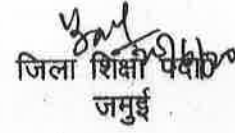 जिला शिक्षा पदा०
जमुई